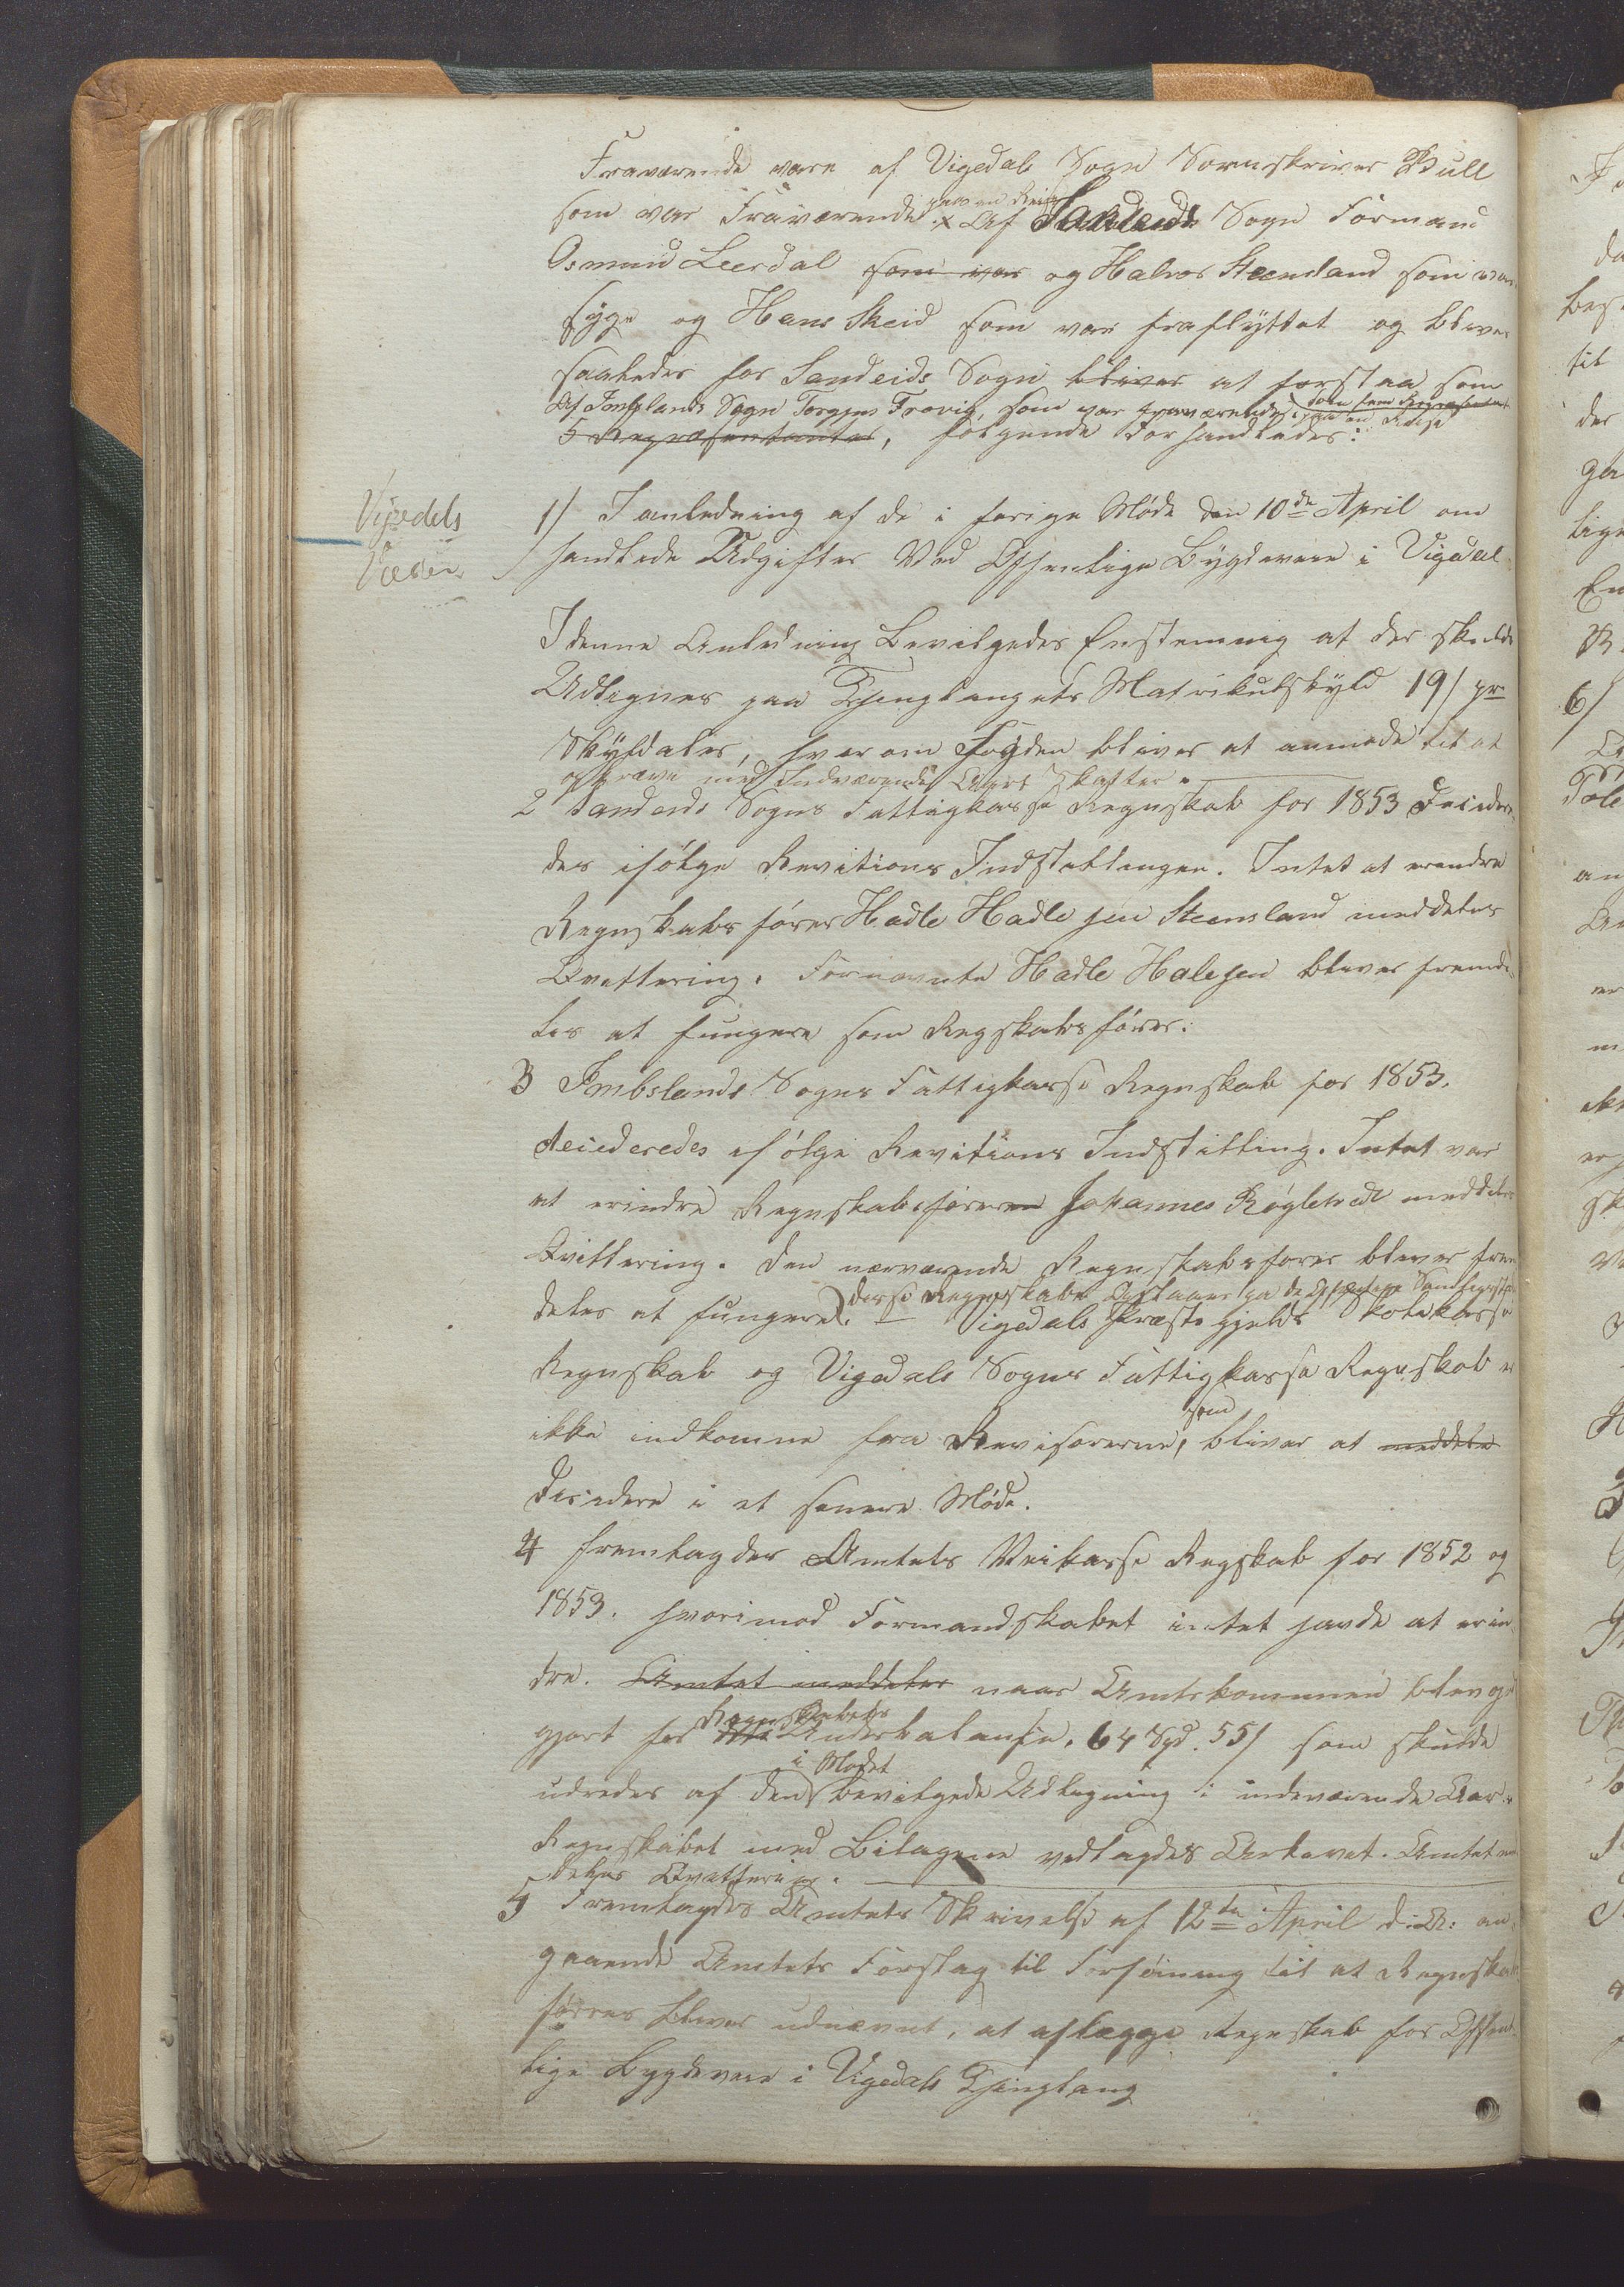 Fraværende vare af Vigedals Sogn Sorenskriver Bull
som var Fraværende paa en Reise x Af Sandeids Sogn Formand
Osmund Leerdal som var og Halvor Steensland som var
syge og Hans Skeid som var fraflyttet og bliver
saaledes for Sandeids Sogn bliver at forstaa som
Af Imslands Sogn Torgers Frovig, som var fraværende paa en Reise
5 Repræsentanter, følgende Forhandledes:
Vigedals
Væsen
1/ I anledning af de i forige Møde den 10de April om
handlede Udgifter Ved Offentlige Bygdeveie i Vigedal
I denne Anledning Bevilgedes Enstemmig at der skulde
Udlignes paa Thinglangets Matrikulskyld 19/ pr
Skyldaler, hvorom Fogden bliver at anmode til at
opkræve med Indværende Aars Skatter.
2 Sandeids Sogns Fattigkasse Regnskab for 1853 Decidere-
des ifølge Revitions Indstillingen. Intet at erindre
Regnskabsfører Hadle Hadlesen Steensland meddeles
Qvittering. Fornævnte Hadle Halesen bliver fremde-
les at fungere som Regskabsfører:
3 Imbslands Sogns Fattigkasse Regnskab for 1853.
decideredes ifølge Revitions Indstilling. Intet var
at erindre Regnskabsføreren Johannes Røgletvedt meddeles
Qvittering. Den nærværende Regnskabsfører bliver frem
deles at fungere. Disse Regnskaber
Vigedals Præstegjelds Skolekasse
Regnskab og Vigedals Sogns Fattigkasse Regnskab er
ikke indkomne fra Revisorerne, som bliver at meddele
Decidere i et senere Møde.
4 fremlagdes Amtets Veikasse Regskab for 1852 og
1853. hvorimod Formandskabet intet havde at erin
dre. Amtet meddeles naar Amtskommunen blev god
gjort for Regnskabets Underbalanse, 64 Spd. 55/ som skulde
udredes af den i Mødet bevilgede Udligning i indeværende Aar.
Regnskabet med Bilagene vedlagdes Arkivet. Amtet med
deles Qvittering.
5 Fremlagdes Amtets Skrivelse af 12te April d: A: an
gaaende Amtets Forslag til Forføining til at Regnskabs
fører bliver udnævnt, at aflægge Regnskab for Offent
lige Bygdeveie i Vigedals Thinglaug